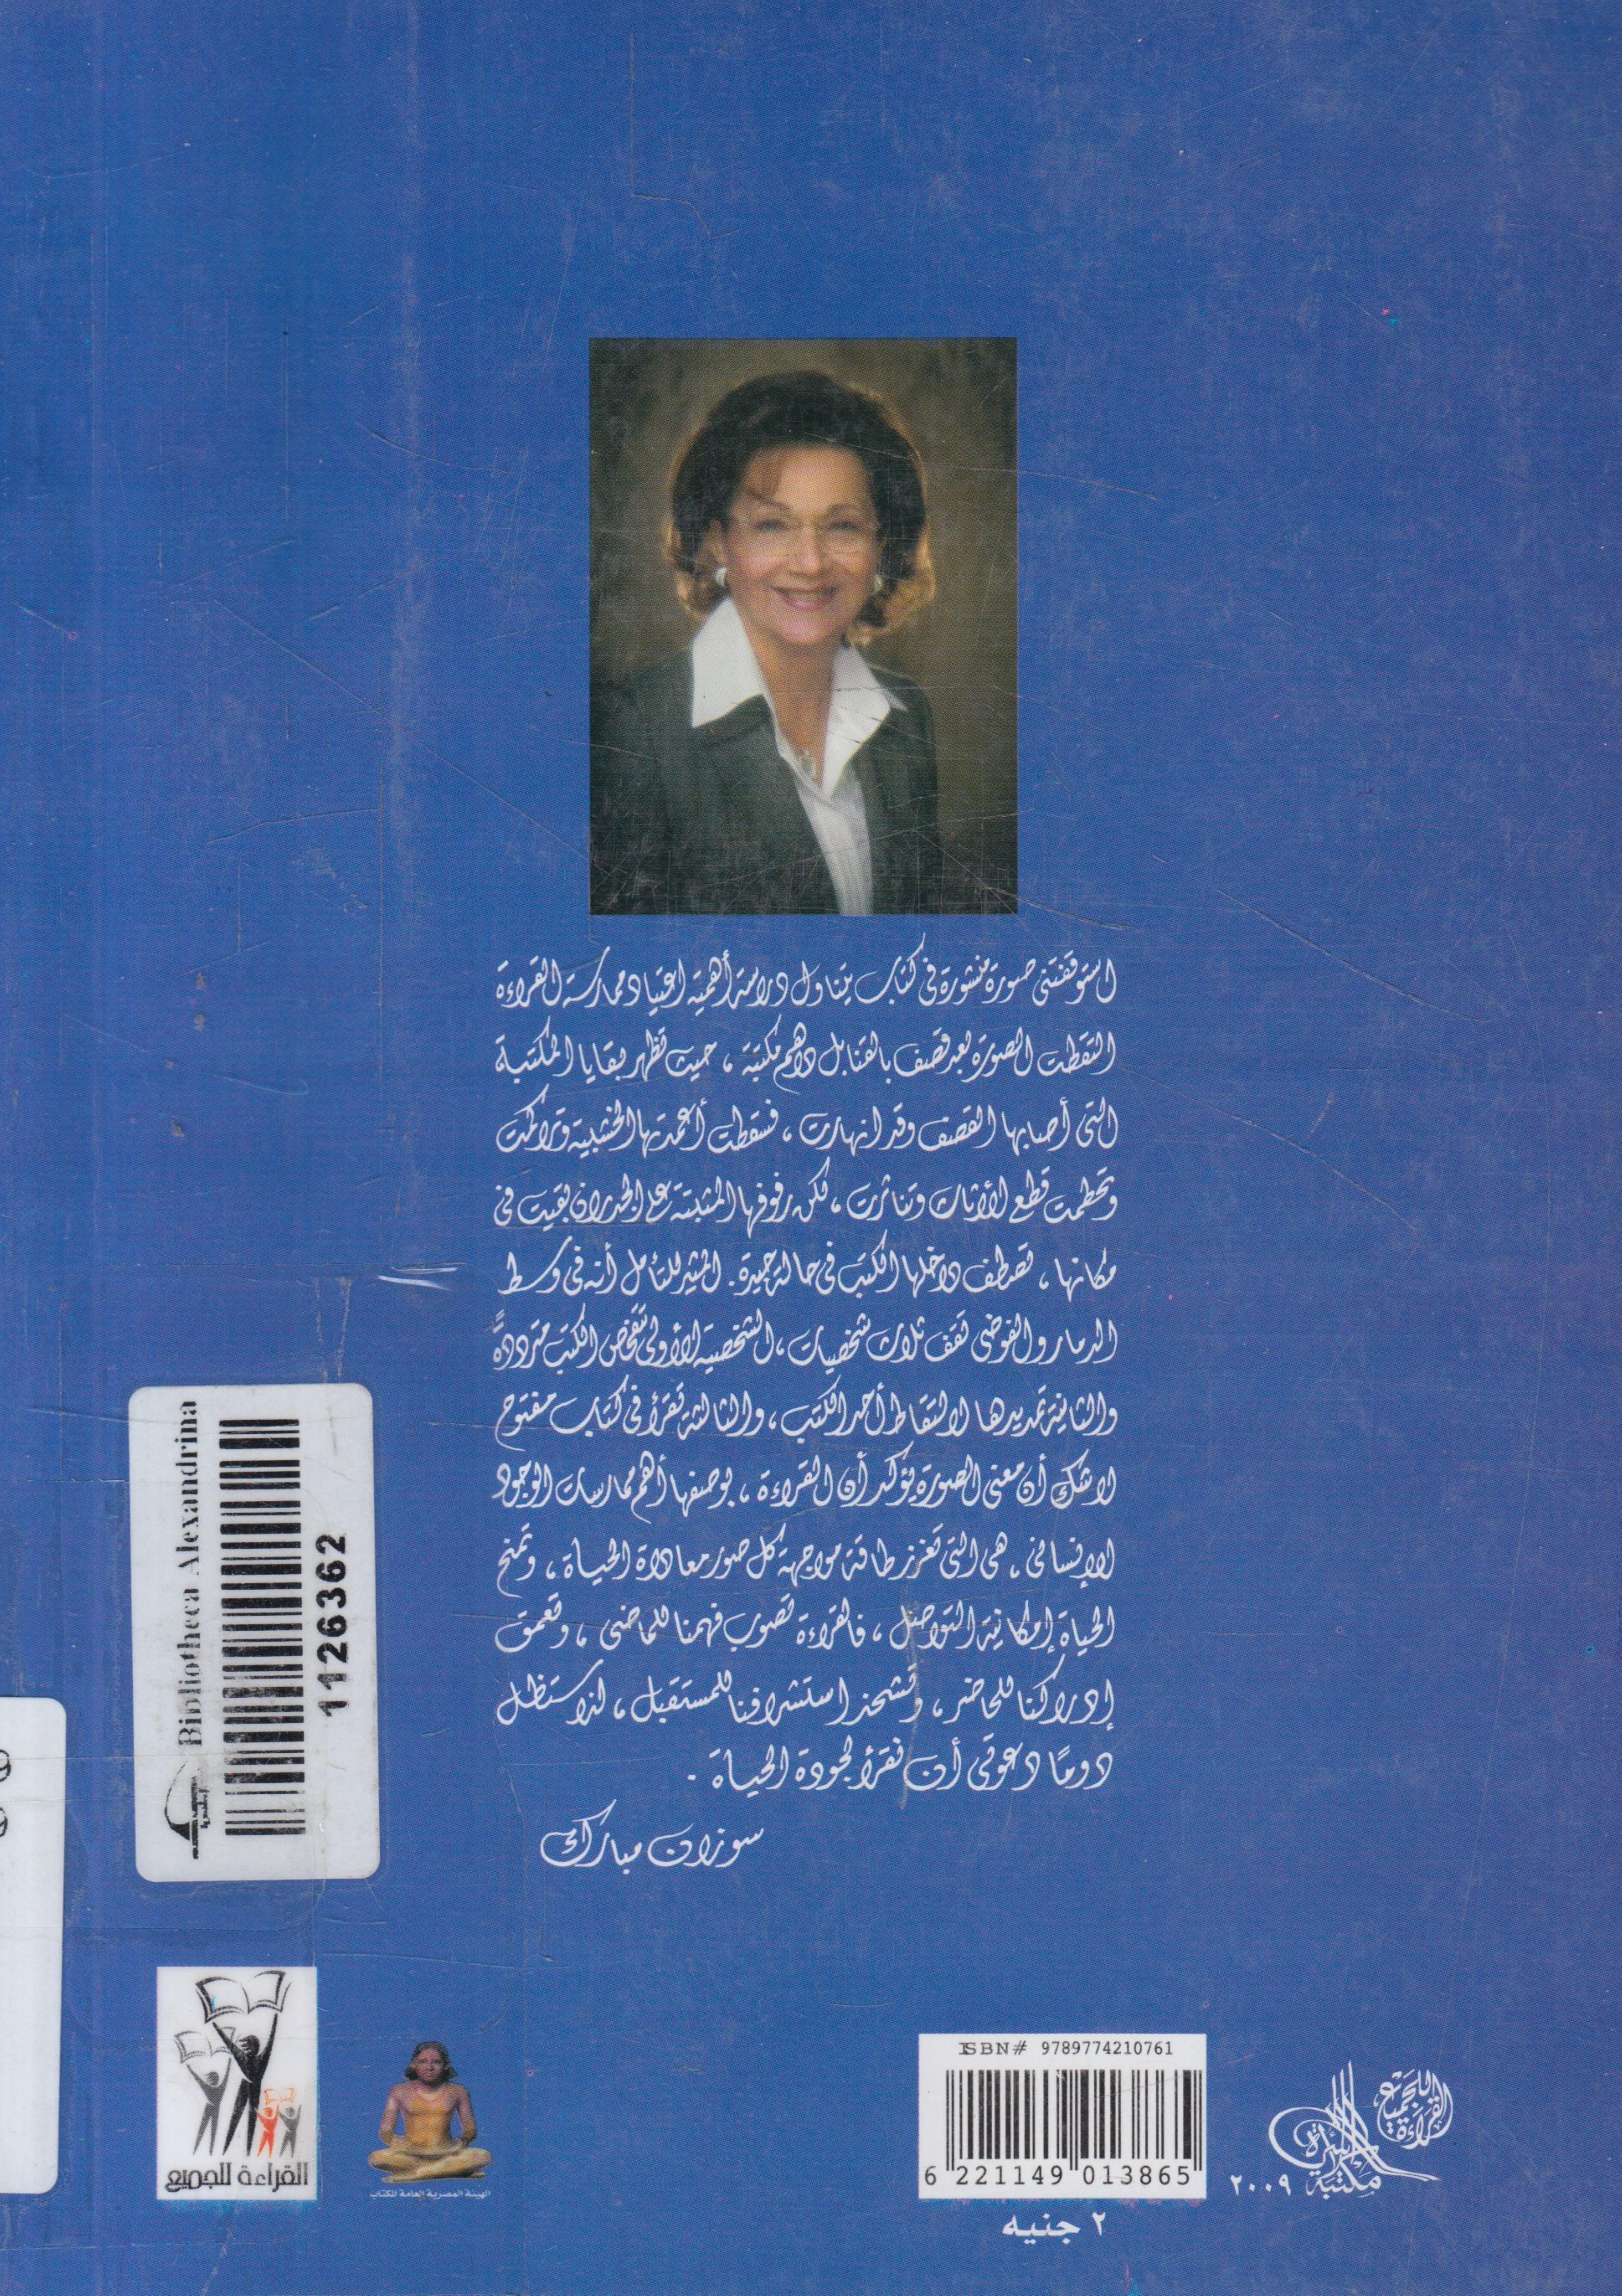 استوقفتنى صورة منشورة فى كتاب يتناول دراسة أهمية اعتياد ممارسة القراءة
التقطت الصورة بعد قصف بالقنابل داهم مكتبة ، حيث تظهر بقايا المكتبة
التى أصابها القصف وقد انهارت ، فسقطت أعمدتها الخشبية وتراكمت
وتحطمت قطع الأثاث وتناثرت ، لكن رفوفها المثبتة على الجدران بقيت فى
مكانها ، تصطف داخلها الكتب فى حالة جيدة . المثير للتأمل أنه فى وسط
الدمار والفوضى تقف ثلاث شخصيات ، الشخصية الأولى تتفحص الكتب مترددةً
والثانية تمد يدها لالتقاط أحد الكتب ، والثالثة تقرأ فى كتاب مفتوح
لا شك أن معنى الصورة يؤكد أن القراءة ، بوصفها أهم ممارسات الوجود
الإنسانى ، هى التى تعزز طاقة مواجهة كل صور معاداة الحياة ، وتمنح
الحياة إمكانية التواصل ، فالقراءة تصوب فهمنا للماضى ، وتعمق
إدراكنا للحاضر ، وتشحذ استشرافنا للمستقبل ، لذا ستظل
دومًا دعوتى أن نقرأ لجودة الحياة .
سوزان مبارك
Bibliotheca Alexandrina
1126362
القراءة للجميع
الهيئة المصرية العامة للكتاب
ISBN# 9789774210761
6 221149 013865
٢ جنيه
القراءة للجميع
مكتبة الأسرة
٢٠٠٩